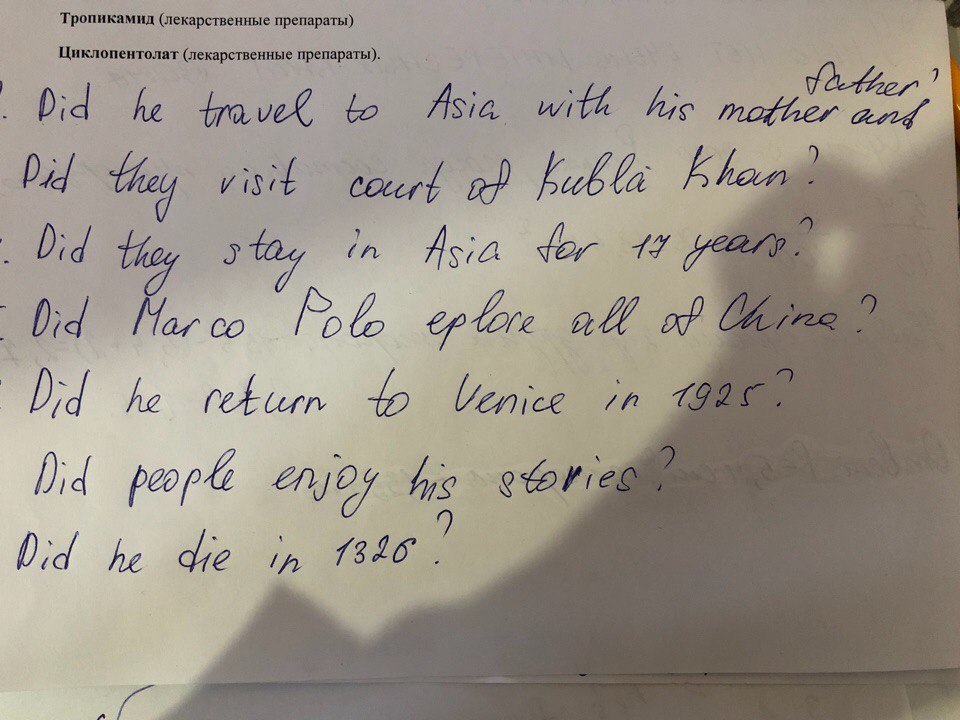 Тропикамид (лекарственные препараты)
Циклопентолат (лекарственные препараты).
father?
. Did he travel to Asia with his mother and
Did they visit court of Kubla Khan?
. Did they stay in Asia for 17 years?
Did Marco Polo eplore all of China?
Did he return to Venice in 1925?
Did people enjoy his stories?
Did he die in 1326?